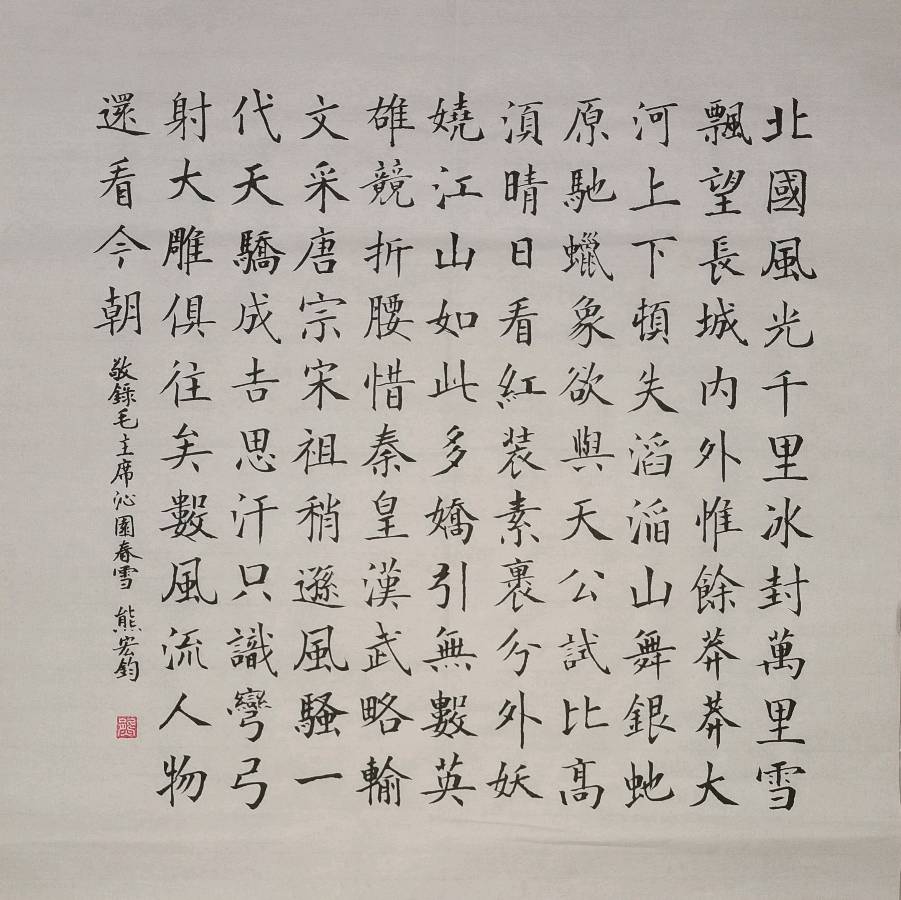 北國風光千里冰封萬里雪
飄望長城内外惟餘莽莽大
河上下頓失滔滔山舞銀虵
原馳蠟象欲與天公試比高
湏晴日看紅裝素裹分外妖
嬈江山如此多嬌引無數英
雄競折腰惜秦皇漢武略輸
文采唐宗宋祖稍遜風騷一
代天驕成吉思汗只識彎弓
射大雕俱往矣數風流人物
還看今朝
敬錄毛主席沁園春雪 熊宏鈞